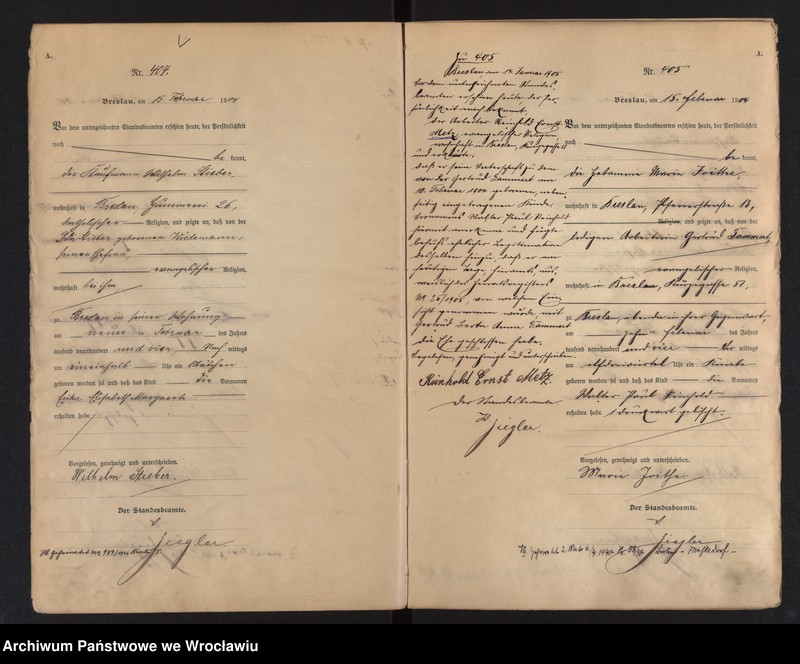 A.
Nr. 404.
Breslau, am 15. Februar 1904
Vor dem unterzeichneten Standesbeamten erschien heute, der Persönlichkeit
nach
be kannt,
der Kaufmann Wilhelm Stieber,
wohnhaft in Breslau, 26,
katholischer Religion, und zeigte an, daß von der
Stieber geborenen Wiedemann,
seiner Ehefrau,
evangelischer Religion,
wohnhaft bei ihm
zu Breslau in seiner Wohnung
am neunten Februar des Jahres
tausend neunhundert und vier Nach mittags
um eineinhalb Uhr ein Mädchen
geboren worden sei und daß das Kind die Vornamen
Erika Elisabeth Margareth
erhalten habe.
Vorgelesen, genehmigt und unterschrieben.
Wilhelm Stieber.
Der Standesbeamte.
Ziegler
Zu 405
Breslau am 1905
Vor dem unterzeichneten Standes-
beamten erschien heute, der Per-
sönlichkeit nach bekannt,
der Arbeiter Reinhold Ernst
Metz, evangelischer Religion
wohnhaft in Breslau, 51
und erklärte,
daß er seine Vaterschaft zu dem
von der Gertrud Tammert am
10. Februar 1904 geborenen, neben-
seitig eingetragenen Kinde
Vornamens Walter Paul Reinhold
hiermit anerkenne und fügte
behufs Legitimation
desselben hinzu, daß er am
heutigen Tage, hieramts, aus-
weislich des Heiratsregisters
Nr 25/1905, von welchem Ein-
sicht genommen wurde, mit
Gertrud Anna Tammert
die Ehe geschlossen habe.
Vorgelesen genehmigt und unterschrieben
Reinhold Ernst Metz.
Der Standesbeamte.
Ziegler.
A.
Nr. 405
Breslau, am 15. Februar 1904
Vor dem unterzeichneten Standesbeamten erschien heute, der Persönlichkeit
nach
be kannt,
die Hebamme Marie
wohnhaft in Breslau, 13,
Religion, und zeigte an, daß von der
ledigen Arbeiterin Gertrud Tammert,
evangelischer Religion,
wohnhaft in Breslau, 51,
zu Breslau, ebenda in ihrer Gegenwart,
am zehnten Februar des Jahres
tausend neunhundert und vier Vor mittags
um Uhr ein Knabe
geboren worden sei und daß das Kind die Vornamen
Walter Paul Reinhold
erhalten habe. 1 Druckwort gelöscht.
Vorgelesen, genehmigt und unterschrieben.
Marie
Der Standesbeamte.
Ziegler
Archiwum Państwowe we Wrocławiu